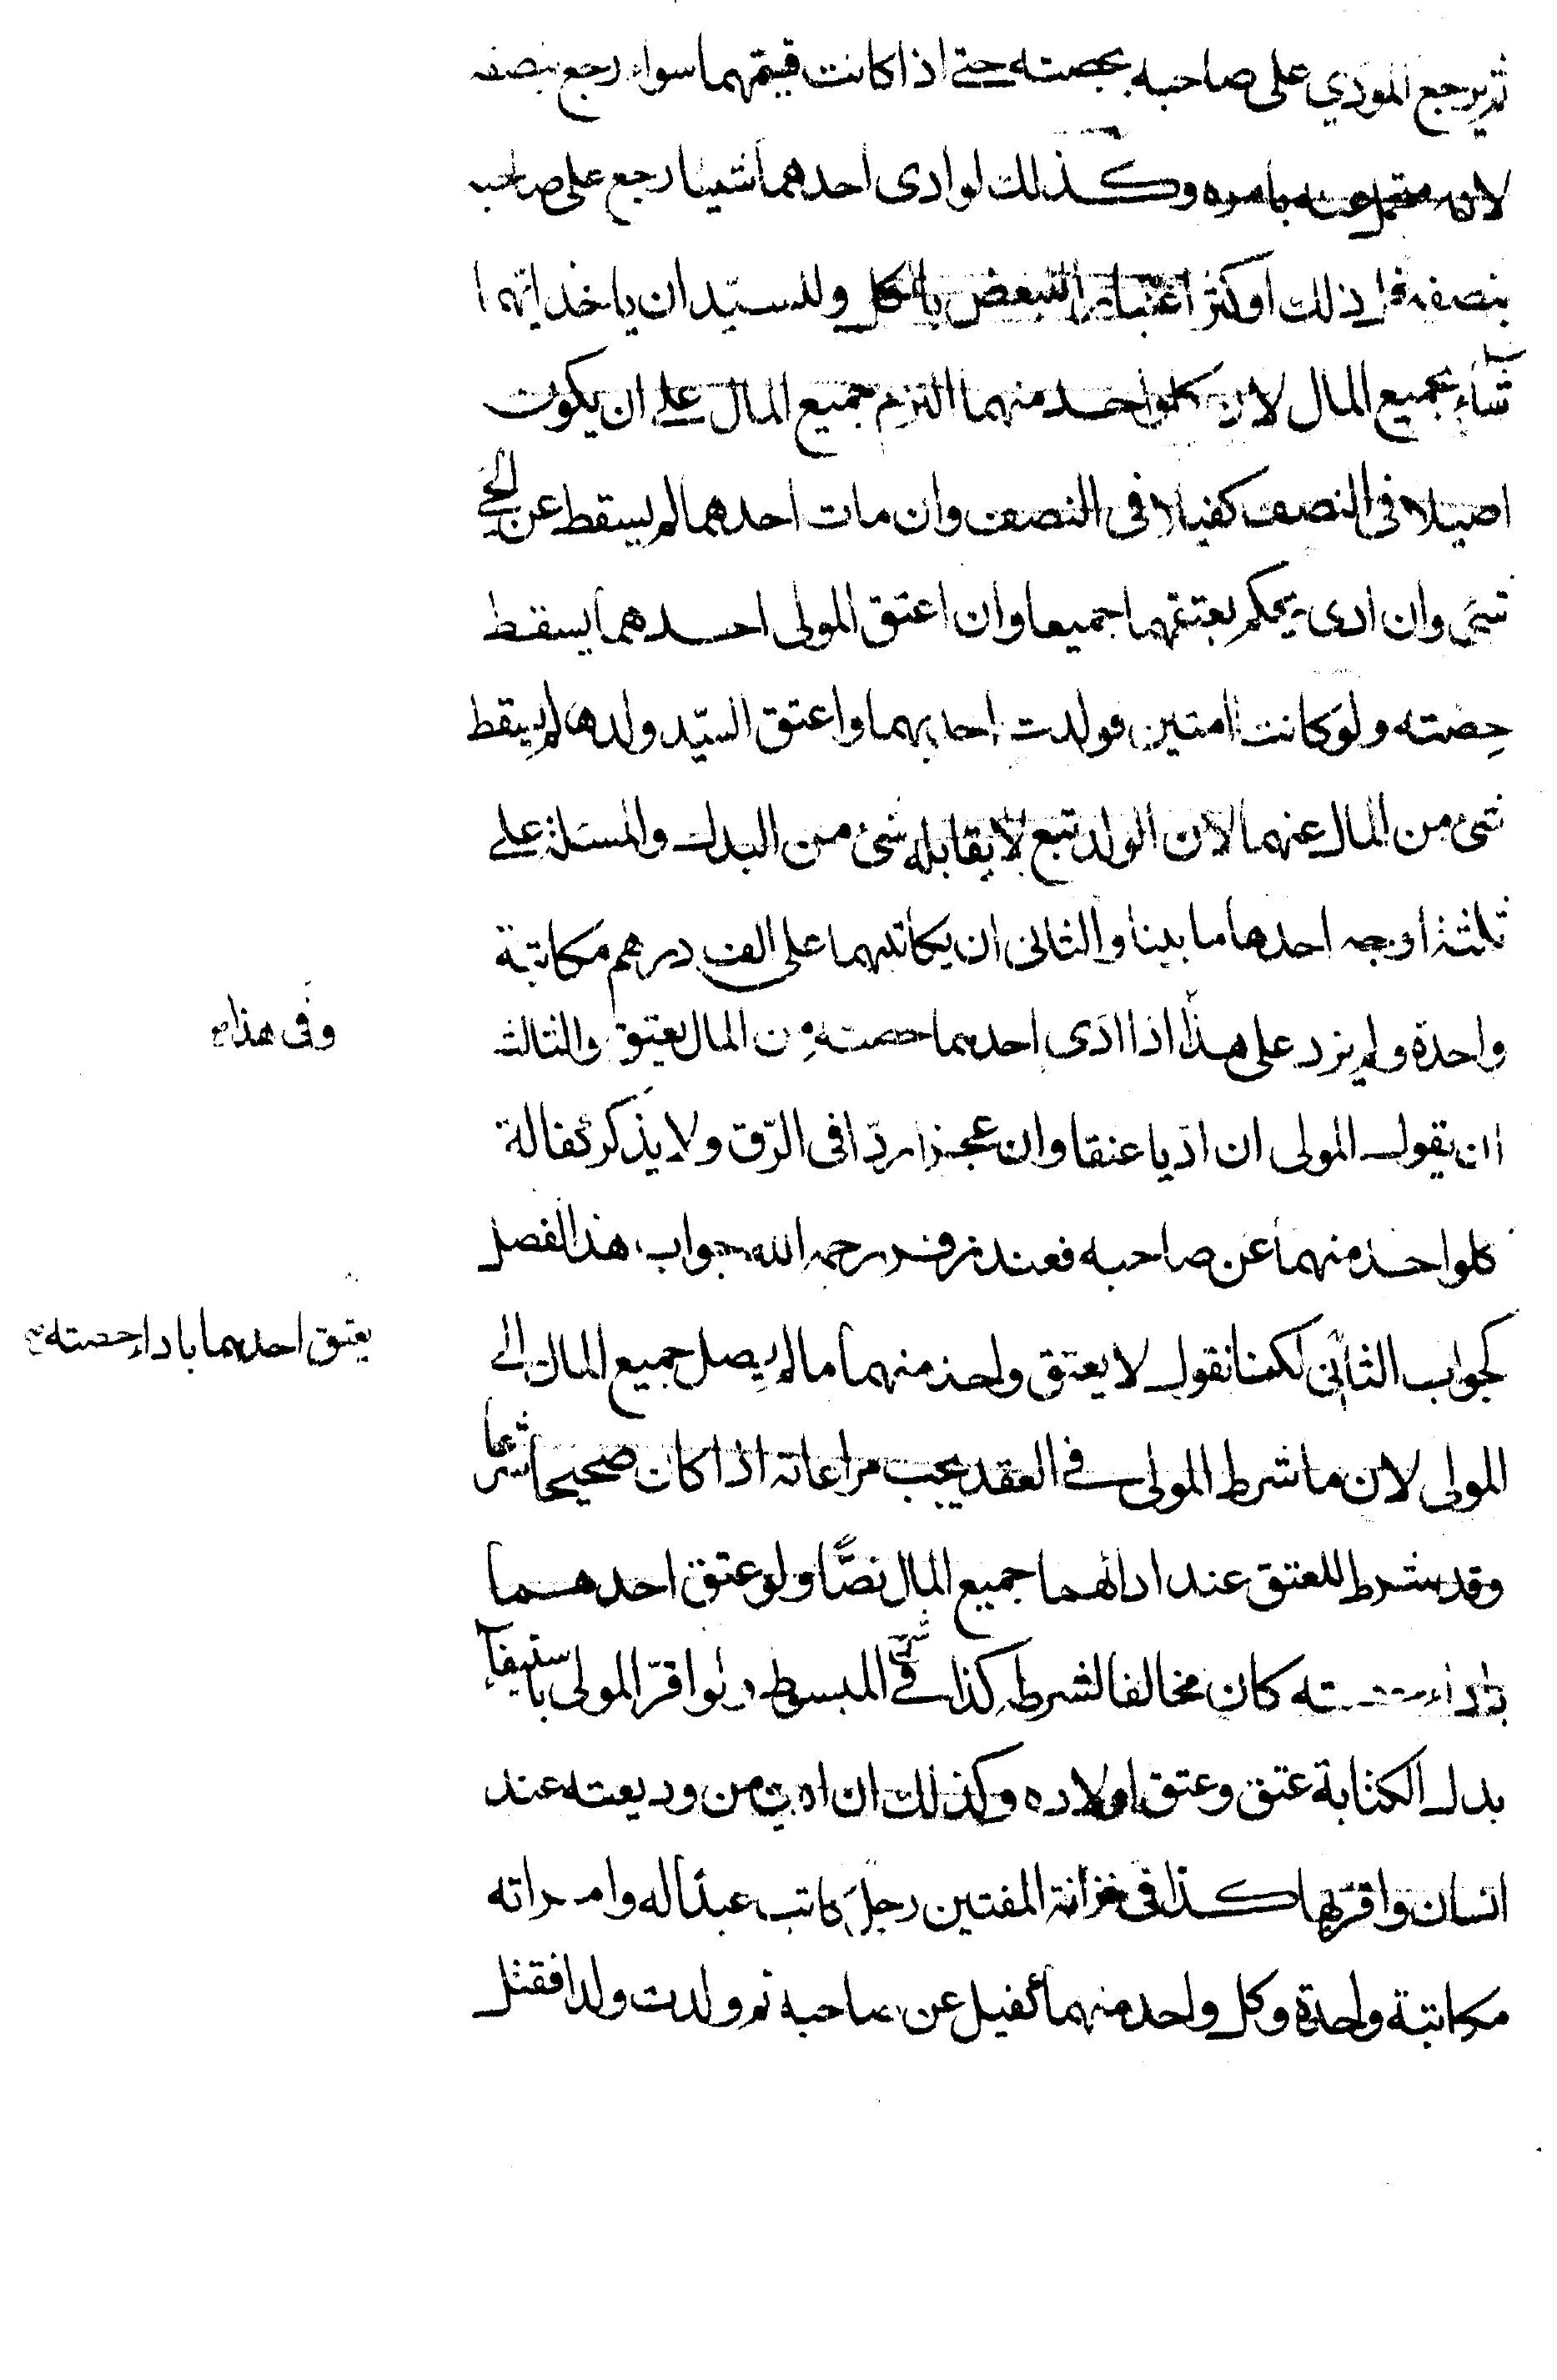 ثم يرجع المودي على صاحبه بحصته حتى اذا كانت قيمتهما سواء رجع بنصفه
لانه متحمل عنه بامره وكذلك لو ادى احدهما شيئا رجع على صاحبه
بنصفه قل ذلك او كثر اعتبارا للبعض بالكل وللسيد ان ياخذ ايهما
شاء بجميع المال لان كلواحد منهما التزم جميع المال على ان يكون
اصيلا في النصف كفيلا في النصف وان مات احدهما لم يسقط عن الحي
شئ وان ادى يحكم بعتقهما جميعا وان اعتق المولى احدهما يسقط
حصته ولو كانت امتين فولدت احديهما واعتق السيّد ولدها لم يسقط
شئ من المال عنهما لان الولد تبع لا يقابله شئ من البدل والمسئلة على
ثلثة اوجه احدها ما بينا والثانى ان يكاتبهما على الف درهم مكاتبة
واحدة ولم يزد على هذا اذا ادى احدهما حصته من المال يعتق والثالث
وفى هذا
ان يقول المولى ان اديا عتقا وان عجزا ردّا فى الرّق ولا يذكر كفالة
كلواحد منهما عن صاحبه فعند زفر رحمه الله جواب هذا الفصل
كجواب الثانى لكنا نقول لا يعتق واحد منهما ما لم يصل جميع المال الى
يعتق احدهما باداء حصته
المولى لان ما شرط المولى فى العقد يجب مراعاته اذا كان صحيحا شرعا
وقد شرط للعتق عند ادائهما جميع المال نصًّا ولو عتق احدهما
باداء حصته كان مخالفا لشرطه كذا فى المبسوط ولو اقرّ المولى باستيفاء
بدل الكتابة عتق وعتق اولاده وكذلك ان ادى من وديعته عند
انسان واقر بها كذا فى خزانة المفتين رجل كاتب عبدا له وامراته
مكاتبة واحدة وكل واحد منهما كفيل عن صاحبه ثم ولدت ولدا فقتل